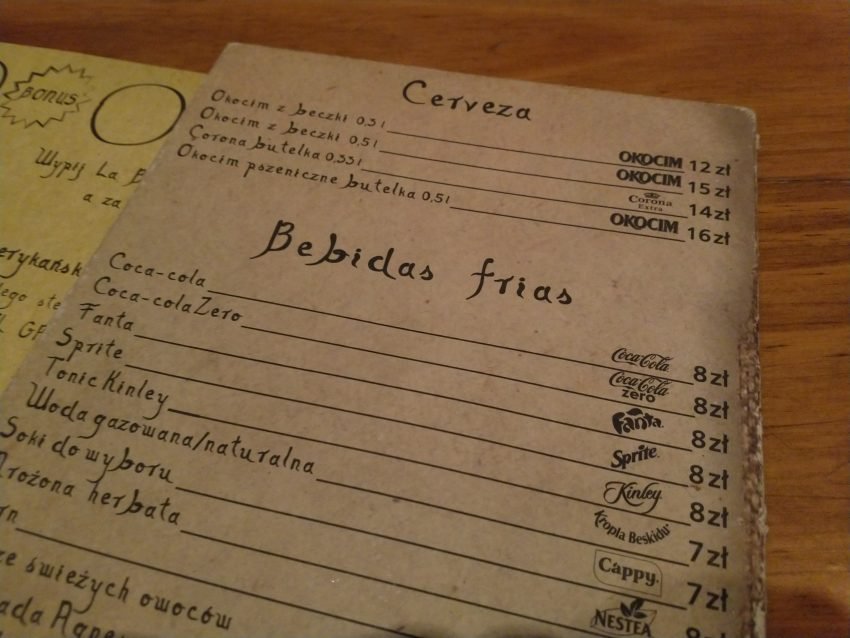 BONUS
Wypij La
a za
erykańsk
łego ste
GP
Cerveza
Okocim z beczki 0,3 l OKOCIM 12 zł
Okocim z beczki 0,5 l OKOCIM 15 zł
Corona butelka 0,33 l Corona Extra 14 zł
Okocim pszeniczne butelka 0,5 l OKOCIM 16 zł
Bebidas frias
Coca-cola Coca-Cola 8 zł
Coca-cola Zero Coca-Cola zero 8 zł
Fanta Fanta 8 zł
Sprite Sprite 8 zł
Tonic Kinley Kinley 8 zł
Woda gazowana/naturalna Kropla Beskidu 7 zł
Soki do wyboru Cappy 7 zł
Mrożona herbata NESTEA
ze świeżych owoców